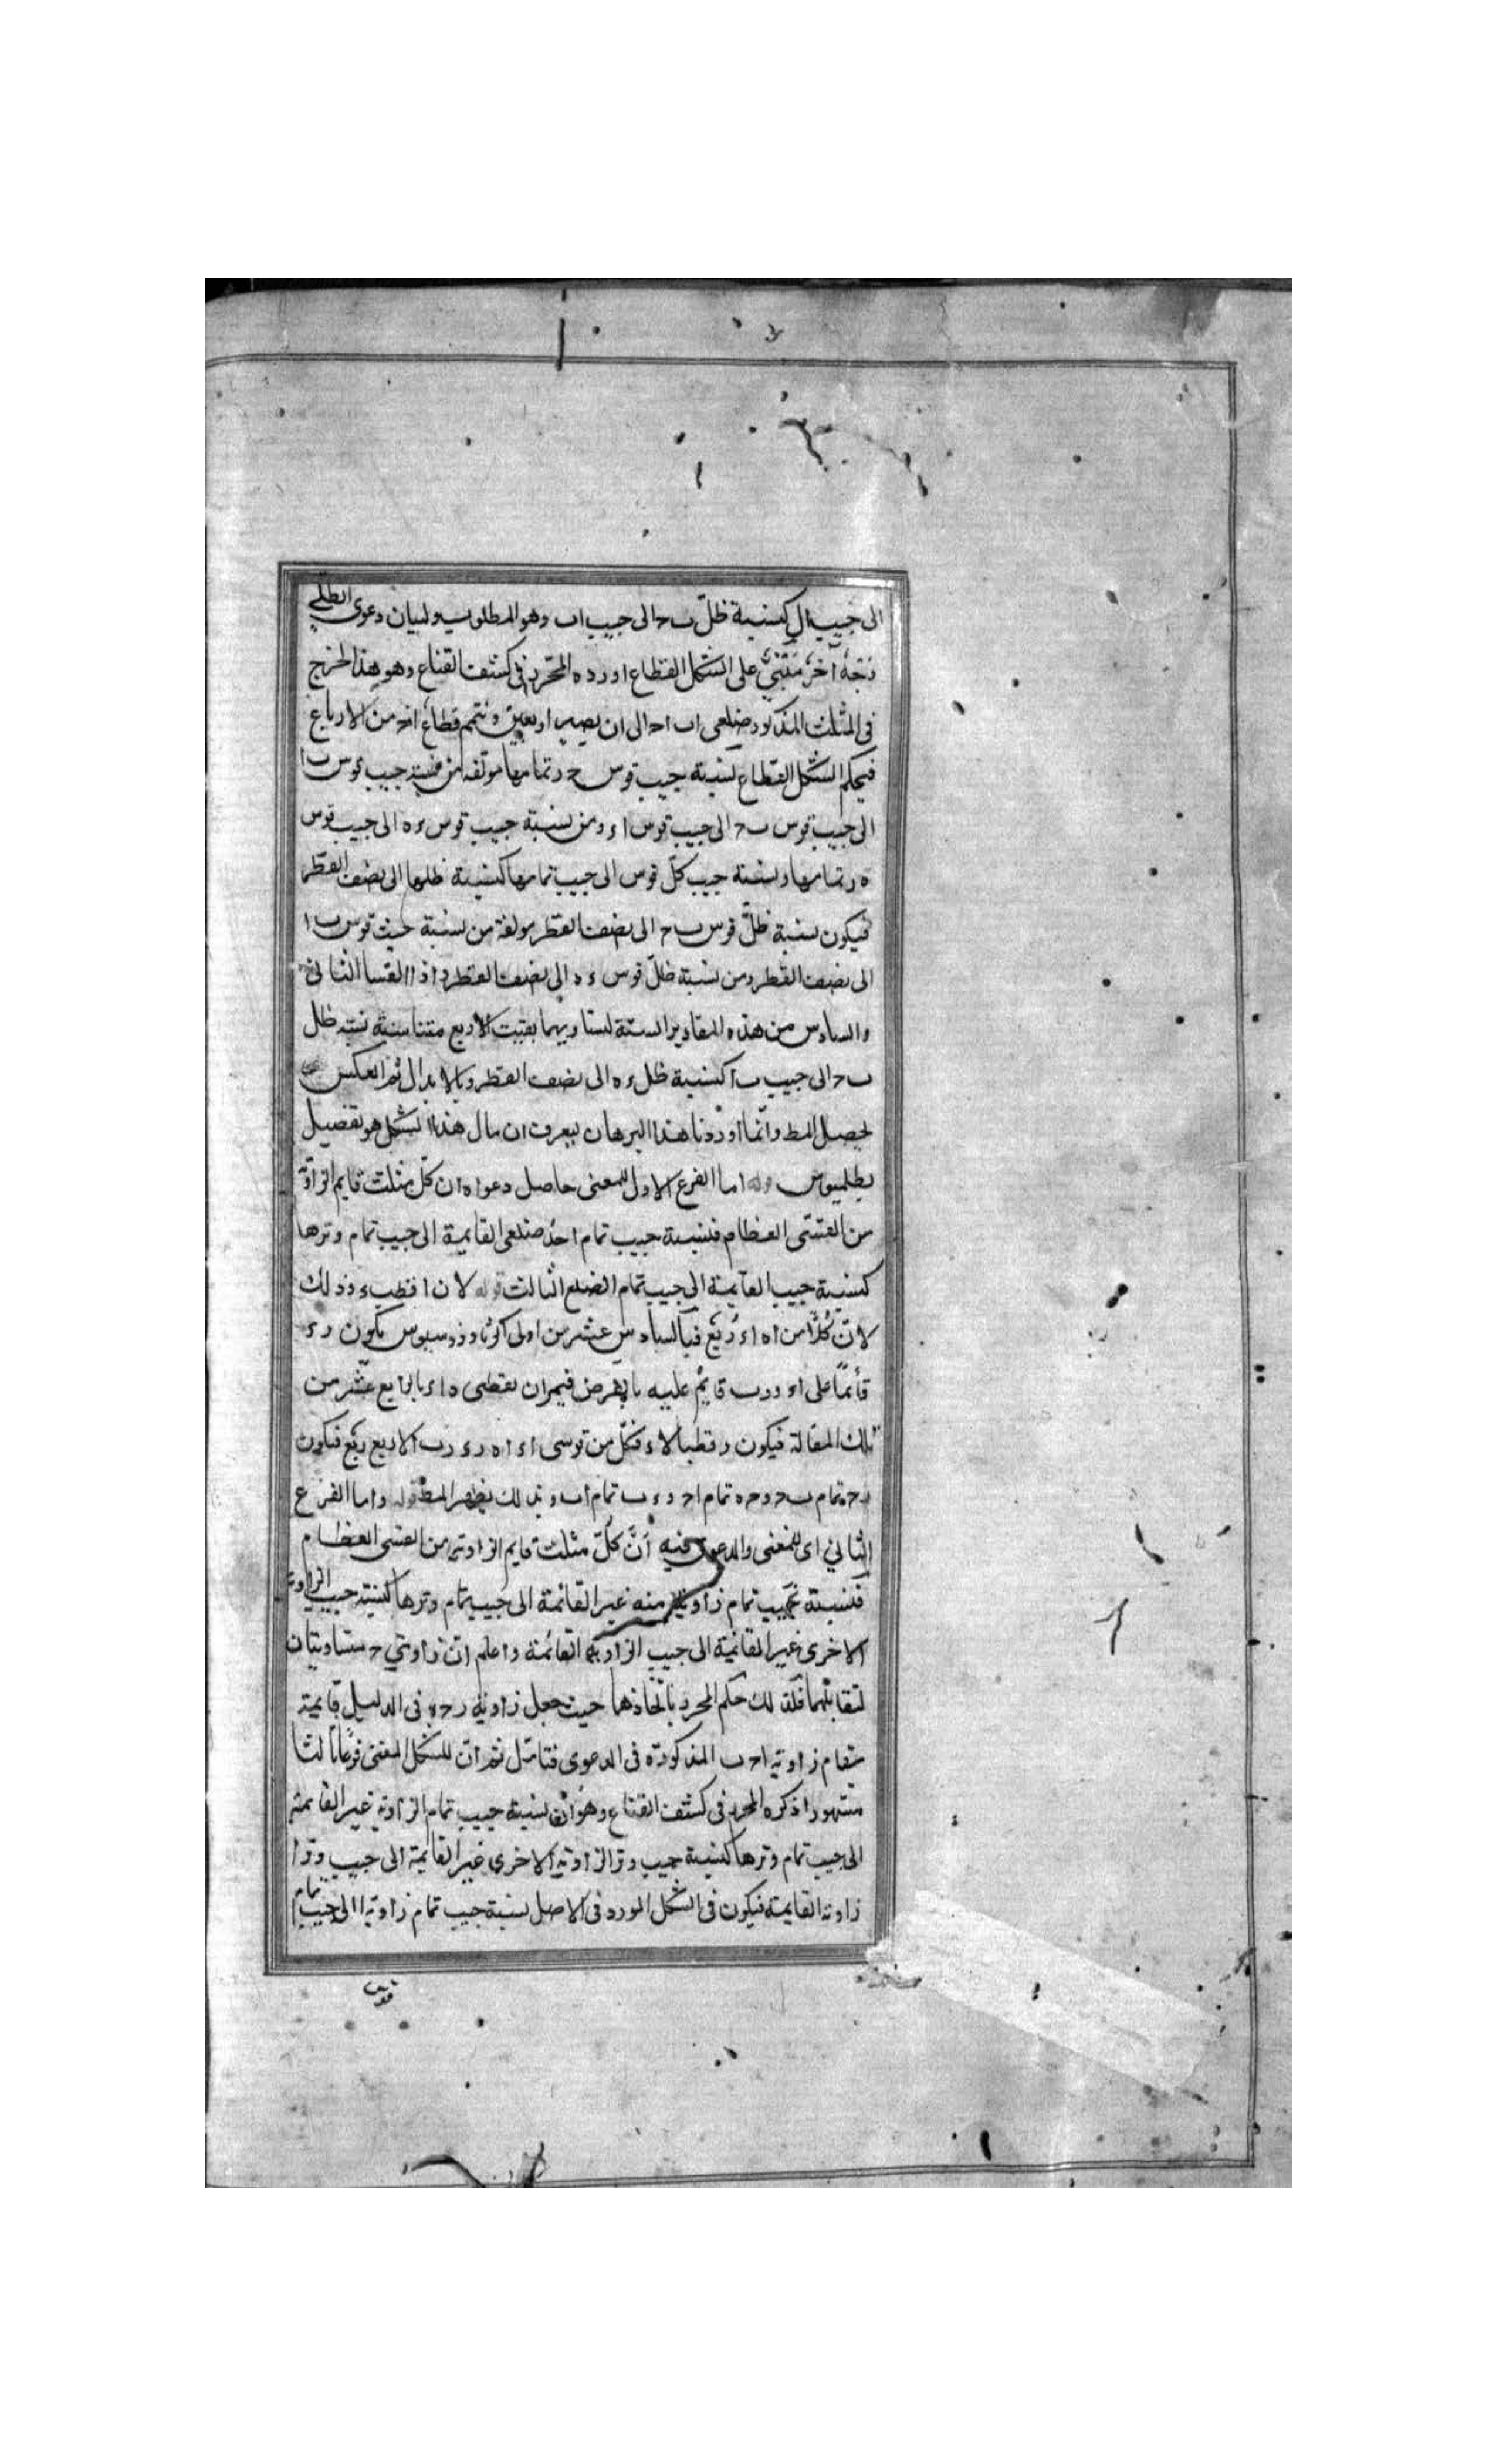 الى جيب ال كنسبة ظلّ ب ح الى جيب اب وهو المطلوب ولبيان دعوى الظلي
وجهٌ آخرُ مبتنيٌ على الشكل القطاع اورده المحرر في كشف القناع وهو هذا لنخرج
في المثلث المذكور ضلعى اب اح الى ان يصير اربعين ونتمم قطاع من الارباع
فبحكم الشكل القطاع نسبة جيب قوس ح ب تمامها مؤلفه من نسبة جيب قوس ب ا
الى جيب قوس الى جيب قوس ا ء ومن نسبة جيب قوس ء ه الى جيب قوس
ه ر تمامها ونسبة جيب كلّ قوس الى جيب تمامها كنسبة ظلها الى نصف القطر
فيكون نسبة ظلّ قوس ب ح الى نصف القطر مولفة من نسبة جيب قوس ب ا
الى نصف القطر ومن نسبة ظلّ قوس ء ه الى نصف القطر واذا القينا الثانى
والسادس من هذه المقادير الستة لتساويهما بقيت الاربع متناسبة نسبة ظل
ب ح الى جيب ب ا كنسبة ظل ء ه الى نصف القطر وبالابدال ثم العكس
يحصل المط وانّما اوردنا هذا البرهان ليعرف ان مال هذا الشكل هو تفصيل
بطلميوس قوله اما الفرع الاول للمغنى حاصل دعواه ان كلّ مثلث قايم الزاوية
من القسّى العظام فنسبة جيب تمام احد ضلعى القايمة الى جيب تمام وترها
كنسبة جيب القايمة الى جيب تمام الضلع الثالث قوله لان ا قطب ء ه وذلك
لانّ كُلًّا من ا ه ا ء رُبع فبالسادس عشر من اولى اكر ثاوذوسيوس يكون ر ء
قائمًا على ا ء و ر ب قايم عليه بالفرض فيمران بقطبى ه ا ء بالرابع عشر من
تلك المقالة فيكون ر قطبا لا ء فكلّ من قوسى ا ء ا ه ر ء ر ب الاربع ربع فيكون
ر ح تمام ب ح و ح ه تمام ا ح و ء ب تمام ا ب وبذلك يظهر المط قوله واما الفرع
الثاني اى للمغنى والدعوى فيه أنّ كلّ مثلث قايم الزاوية من القسى العظام
فنسبة جيب تمام زاوية منه غير القائمة الى جيب تمام وترها كنسبة جيب الزاوية
الاخرى غير القائمة الى جيب الزاوية القائمة واعلم انّ زاويتي ح متساويتان
لتقابلهما فلذلك حكم المحرر باتّحاذهما حيث جعل زاوية ر ح ه فى الدليل قايمة
مقام زاوية ا ح ب المذكورة فى الدعوى فتامّل ثم انّ للشكل المغنى فرعًا ثالثا
مشهورا ذكره المحرر فى كشف القناع وهو أن نسبة جيب تمام الزاوية غير القايمة
الى جيب تمام وترها كنسبة جيب وتر الزاوية الاخرى غير القايمة الى جيب وتر
زاوية القايمة فيكون فى الشكل المورد فى الاصل نسبة جيب تمام زاوية ا الى جيب تمام
قوس